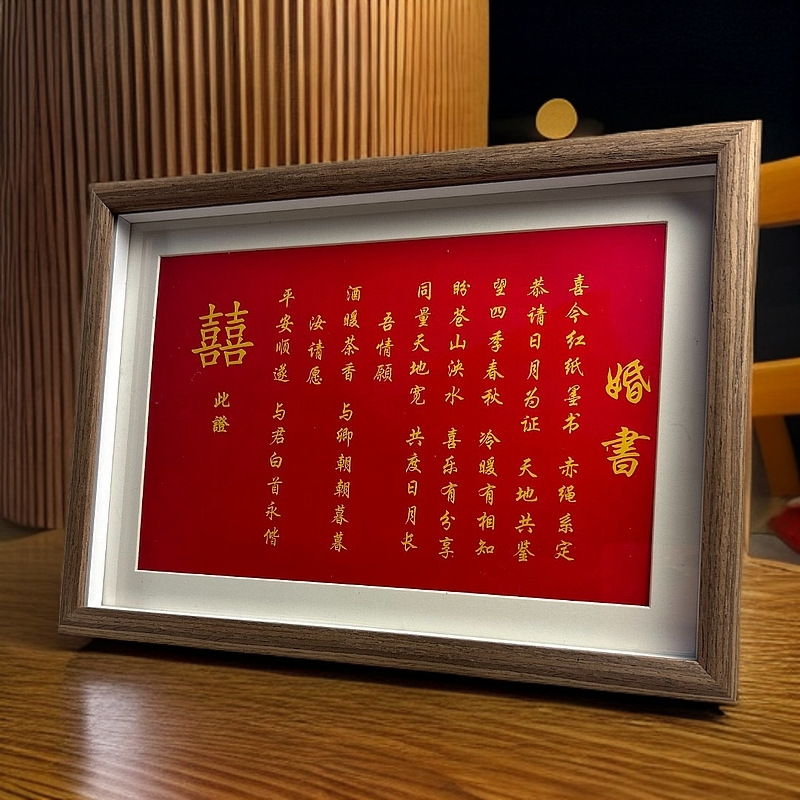 婚書
喜今红纸墨书 赤绳系定
恭请日月为证 天地共鉴
望四季春秋 冷暖有相知
盼苍山泱水 喜乐有分享
同量天地宽 共度日月长
吾情願
酒暖茶香 与卿朝朝暮暮
汝请愿
平安顺遂 与君白首永偕
囍
此證